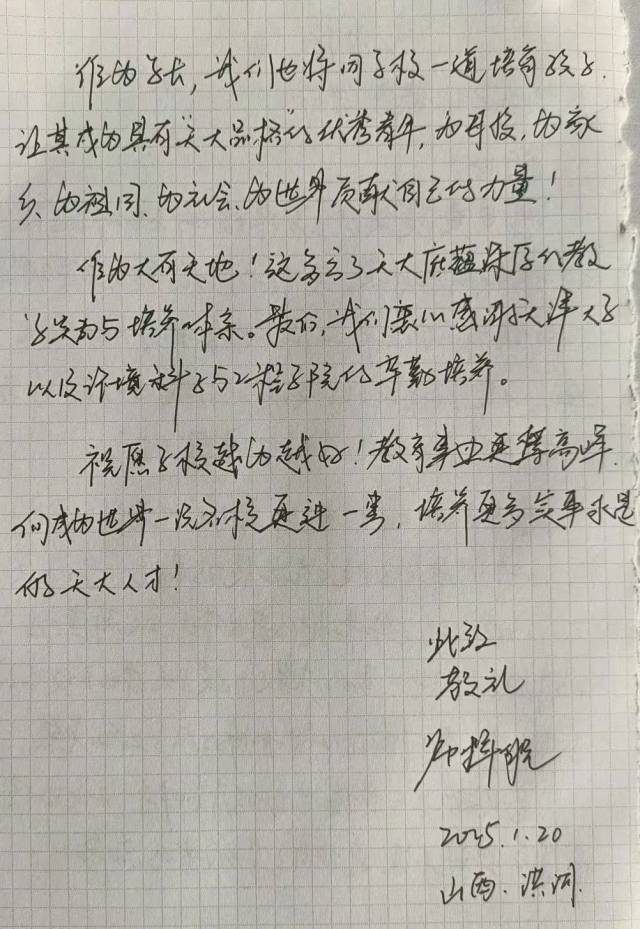 作为家长，我们也将同学校一道培育孩子.
让其成为具有"天大品格"的优秀青年，为母校，为家
乡、为祖国、为社会、为世界贡献自己的力量！
作为大有天地！这多亏了天大底蕴深厚的教
学 与培养体系。最后，我们衷心感谢天津大学
以及环境科学与工程学院的辛勤培养。
祝愿学校越办越好！教育事业再攀高峰.
向成为世界一流名校再进一步，培养更多实事求是
的天大人才！
此致
敬礼
2025.1.20
山西.洪洞.